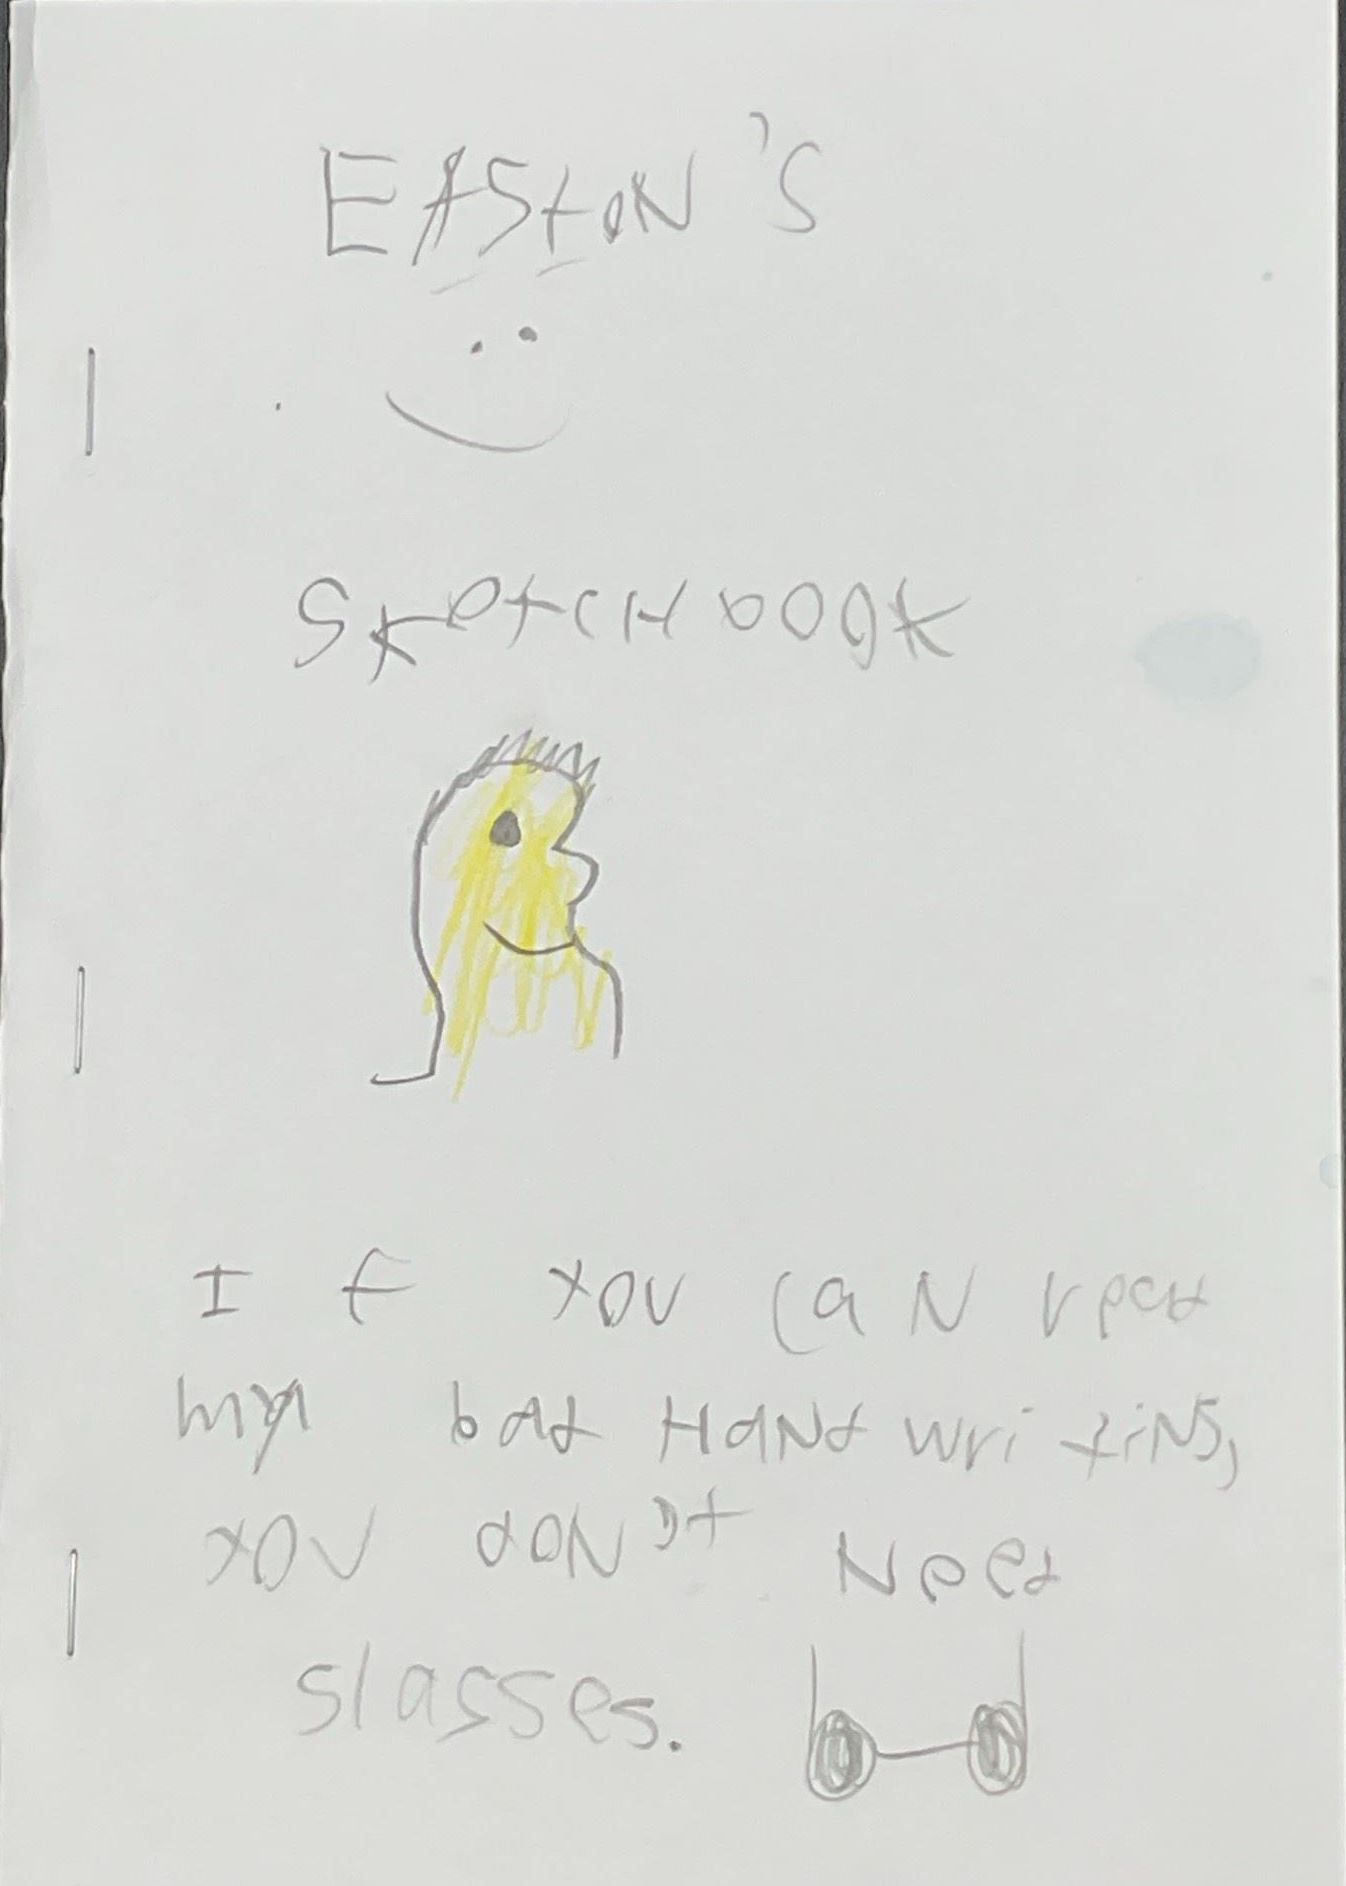 EAStoN's
SketcH book
If you caN read
my bad HaNd writiNg,
you doN't Need
glasses.